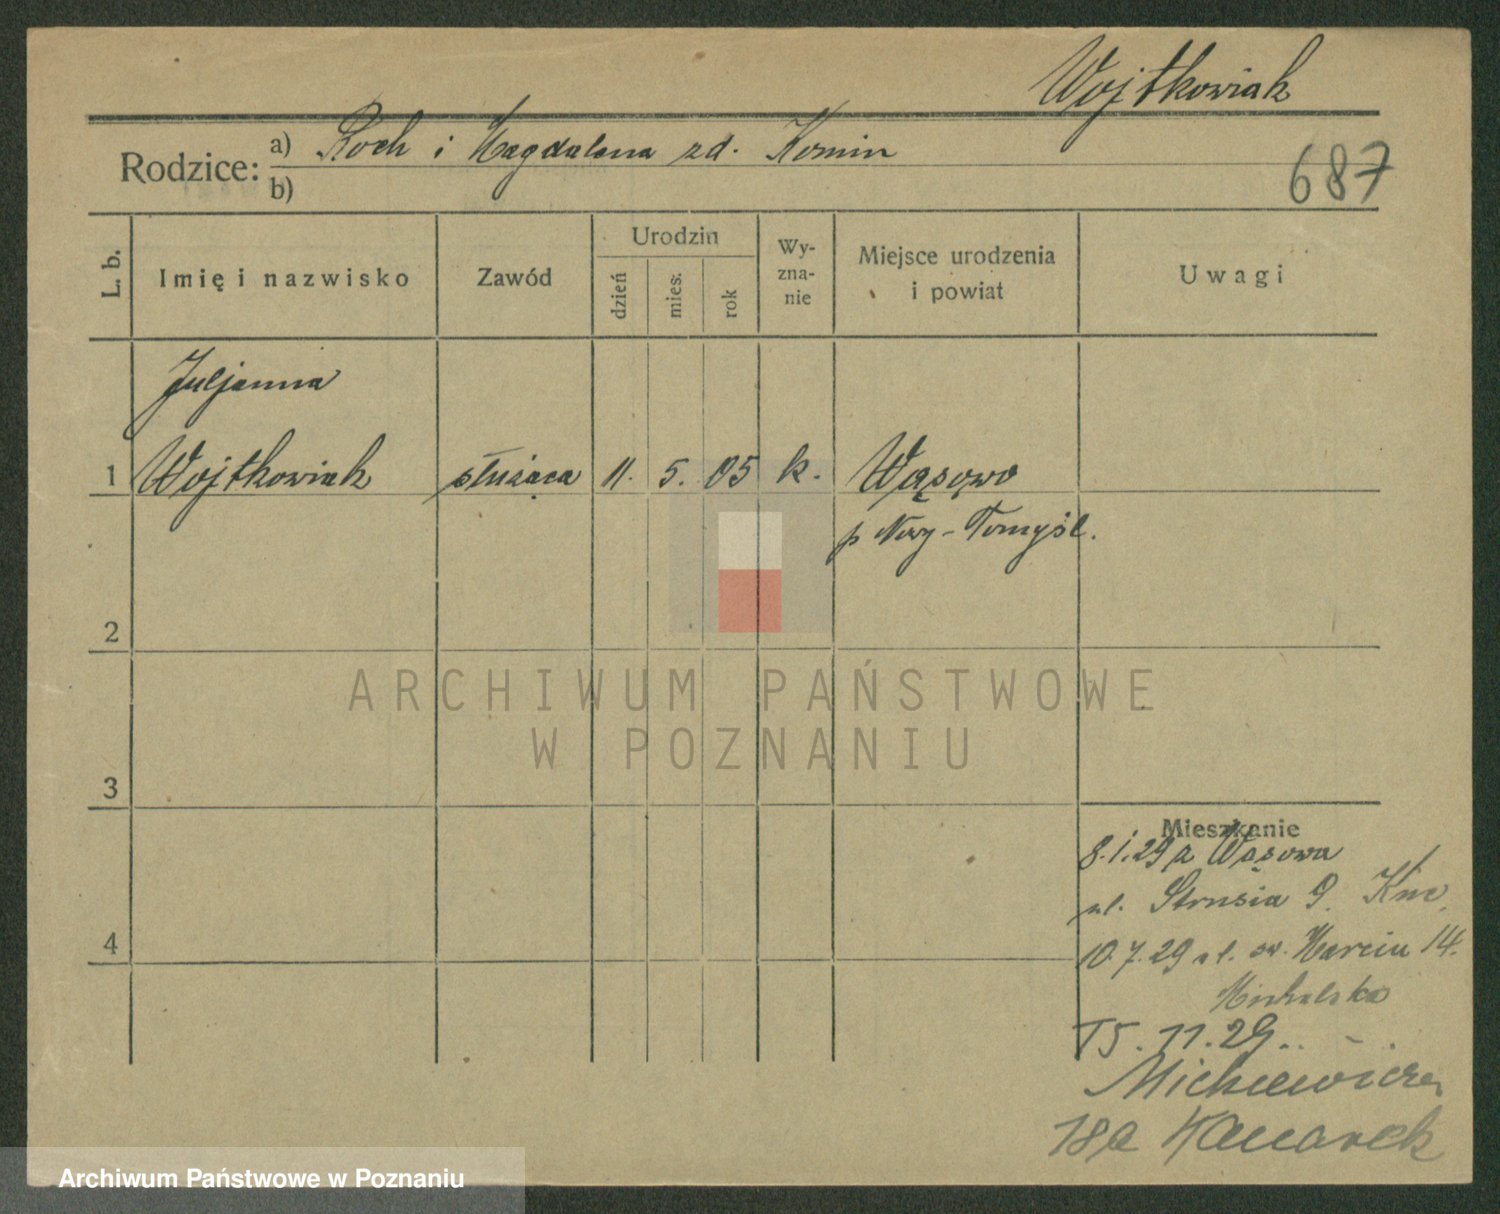 Wojtkowiak
Rodzice: a) Roch i Magdalena zd. Komin
b)
687
L. b.
Imię i nazwisko
Zawód
Urodzin
dzień
mies.
rok
Wy-
zna-
nie
Miejsce urodzenia
i powiat
Uwagi
Juljanna
1 Wojtkowiak służąca 11. 5. 05 k. Wąsowo
p Nowy-Tomyśl.
2
3
4
Mieszkanie
8.1.29 z Wąsowa
ul. Strusia 9.
10.7.29 ul. św. Marcin 14.
Michalska
15.11.29..
18a Kaczarek
ARCHIWUM PAŃSTWOWE
W POZNANIU
Archiwum Państwowe w Poznaniu